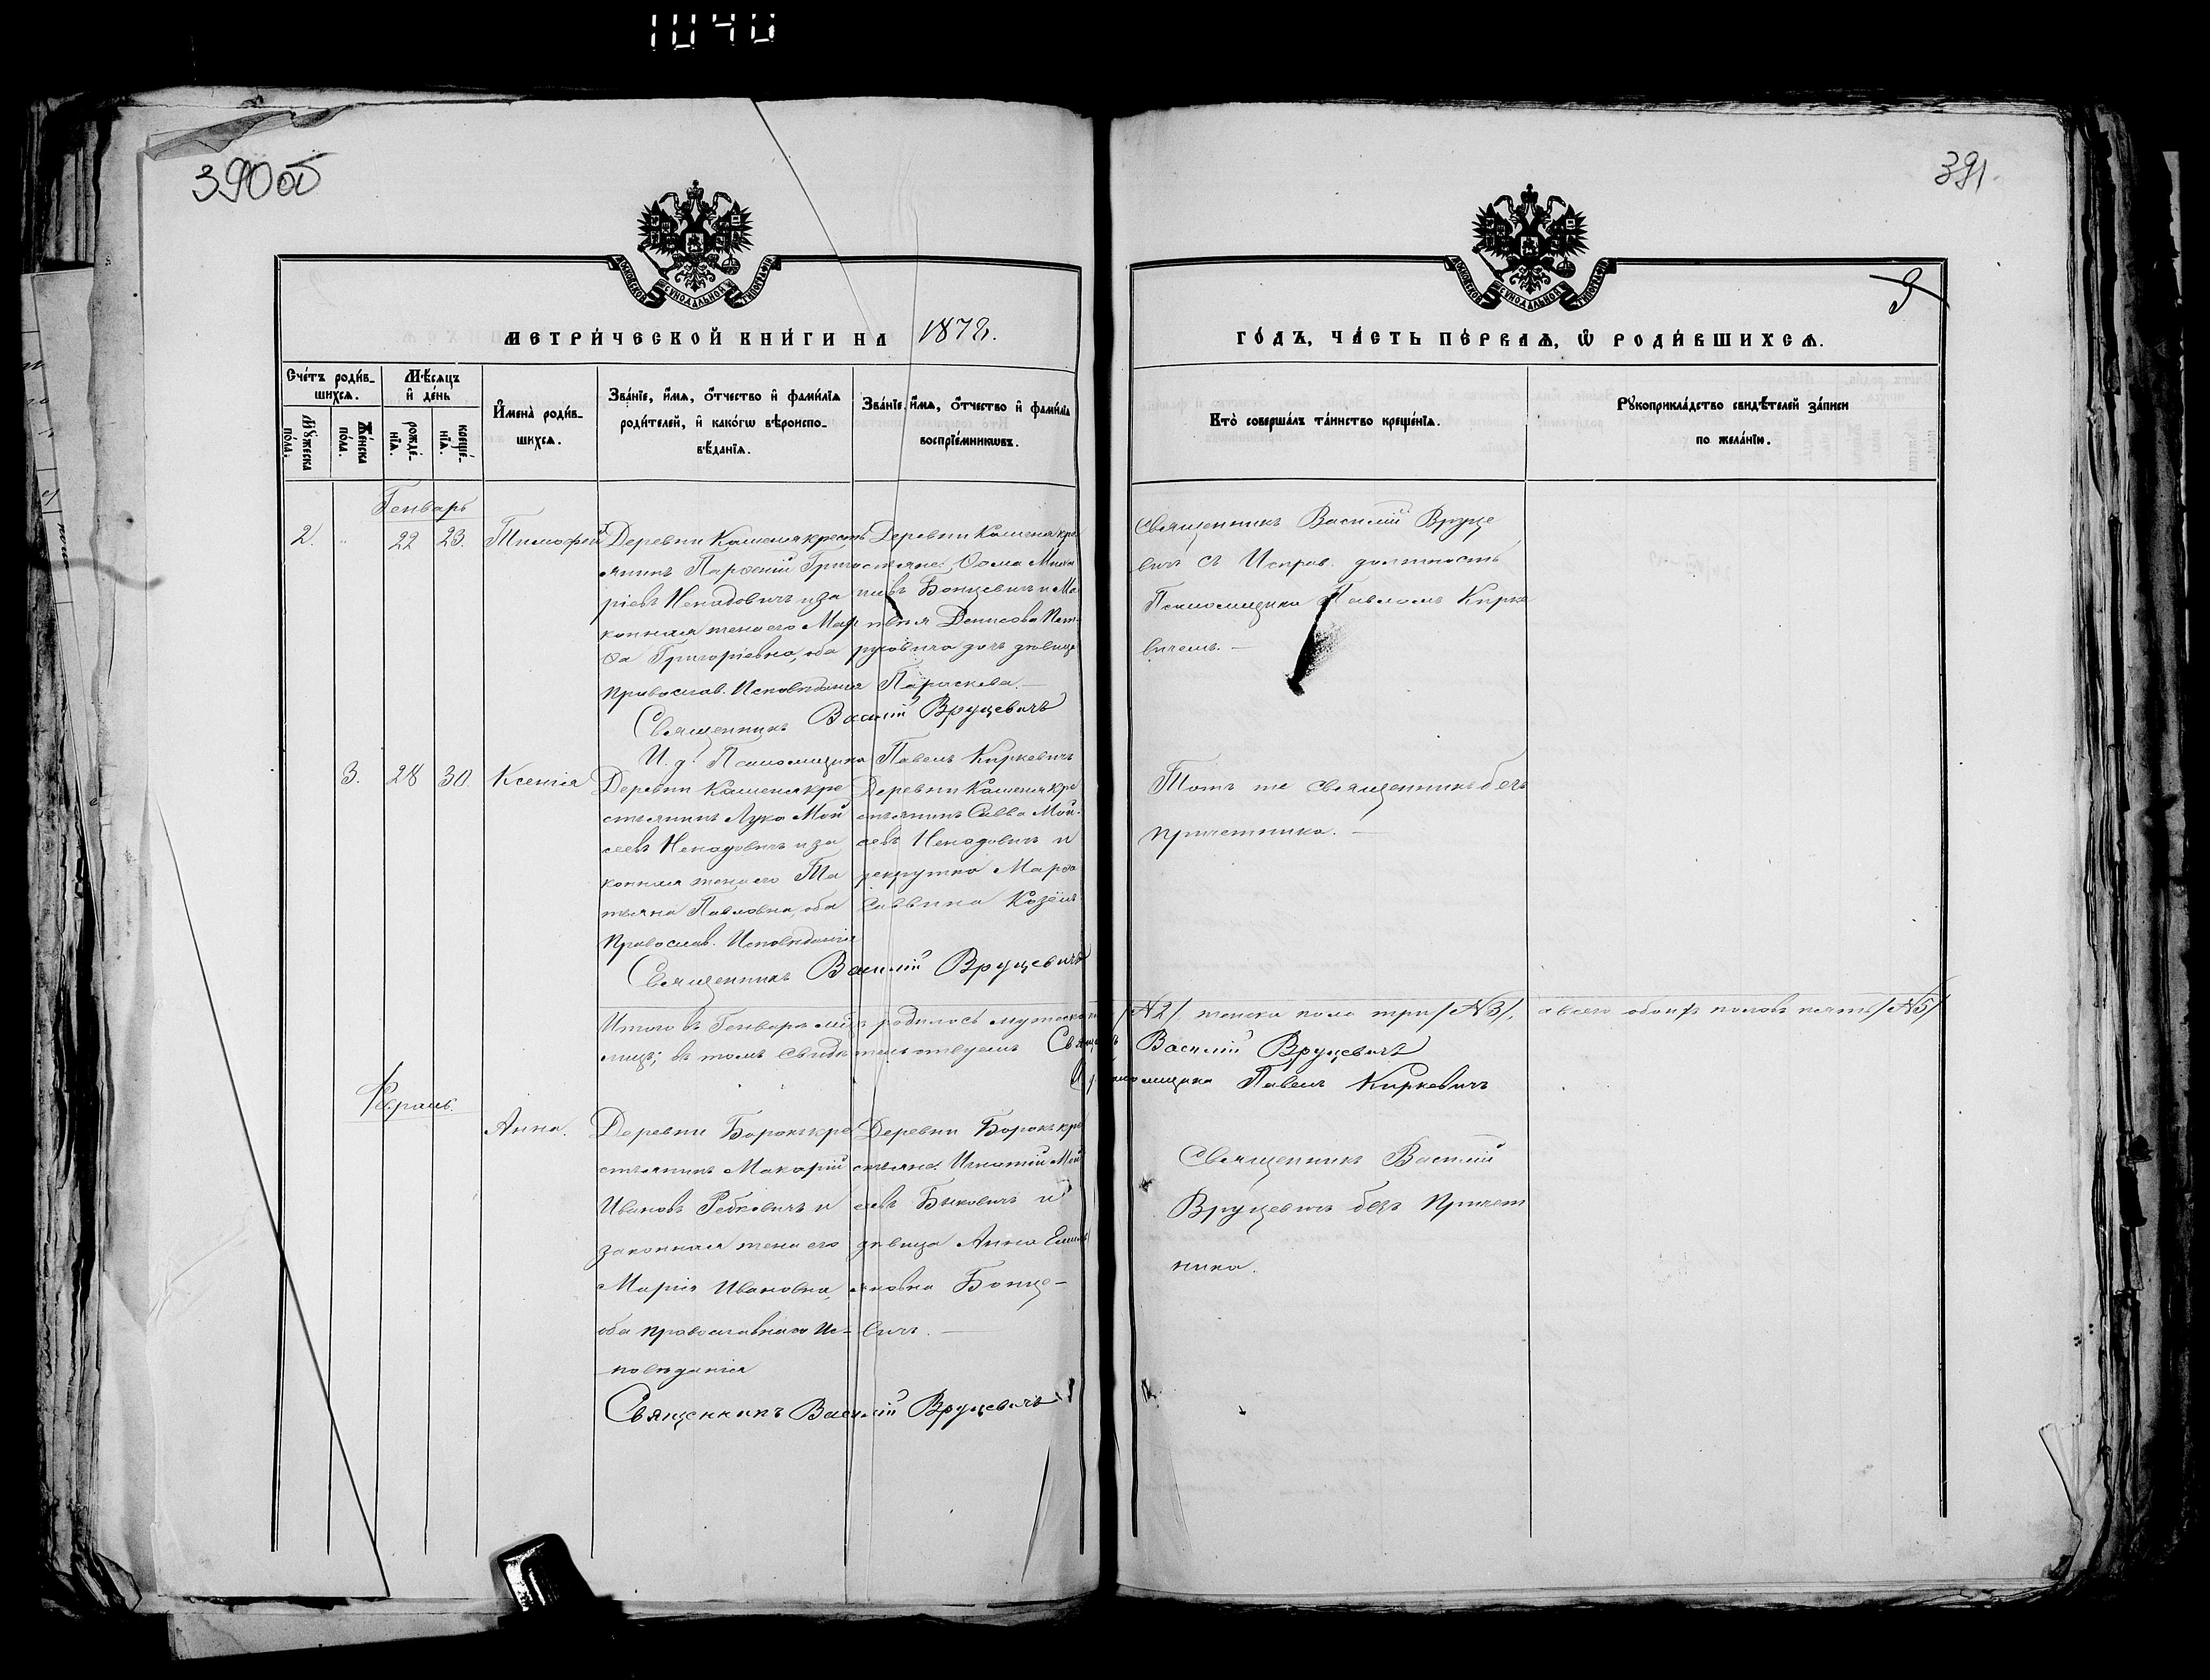 1040
390 об
391
9
МОСКОВСКОЙ СѴНОДАЛЬНОЙ ТИПОГРАФІИ
МОСКОВСКОЙ СѴНОДАЛЬНОЙ ТИПОГРАФІИ
МЕТРИ́ЧЕСКОЙ КНИ́ГИ НА 1872.
ГО́ДЪ, ЧА́СТЬ ПЕ́РВАѦ, Ѽ РОДИ́ВШИХСѦ.
Сче́тъ роди́в-
шихсѧ.
Мꙋ́жеска
по́ла.
Же́нска
по́ла.
Мѣ́сѧцъ
и҆ де́нь
рожде́-
нїѧ.
креще́-
нїѧ.
И҆мена̀ роди́в-
шихсѧ.
Зва́нїе, и҆́мѧ, ѻ҆́тчество и҆ фами́лїѧ
роди́телей, и҆ како́гѡ вѣроиспо-
вѣ́данїѧ.
Зва́нїе, и҆́мѧ, ѻ҆́тчество и҆ фами́лїѧ
воспрїе́мникѡвъ.
Кто̀ соверша́лъ та́инство креще́нїѧ.
Рꙋкоприкла́дство свидѣ́телей за́писи
по жела́нїю.
Генварь
2. " 22 23. Тимофей
Деревни Каменя кресть
янинъ Парфеній Григо
ріевъ Ненадовичъ и за
конная жена его Мар
ѳа Григоріевна, оба
Православ. Исповѣданія
Деревни Каменя кре
стьяне: Ѳома Михаи
ловъ Бонцевичъ и Ма
Денисова Пет
руковича дочь дѣвица
Параскева. —
Священникъ Василій Врублевичъ
И. д. Псаломщика Павелъ Киркевичъ
Священникъ Василій Вруце
вичъ съ Исправ. должность
Псаломщика Павломъ Кирке
вичемъ. —
3. 28 30. Ксенія
Деревни Каменя кре
стьянинъ Лука Мой
сеевъ Ненадовичъ и за
конная жена его Та
тьяна Павловна, оба
Православ. Исповѣданія
Деревни Каменя кре
стьянинъ Савва Мой
сеевъ Ненадовичъ и
рекрутка Марѳа
Саввина Козёлъ
Священникъ Василій Вруцевичъ
Тотъ же Священникъ безъ
причетника. —
Итого въ Генварѣ м-цѣ родилось мужеска /№2/ женска пола три /№3/, а всего обоихъ половъ пять /№5/
лицъ; въ томъ свидѣтельствуемъ Священникъ Василій Вруцевичъ
Псаломщика Павелъ Киркевичъ
Февраль.
Анна.
Деревни Борокъ кре
стьянинъ Макарій
Ивановъ Рабковичъ и
законная жена его
Марія Ивановна,
оба православнаго Ис-
повѣданія
Деревни Борокъ кре
стьяне: Игнатій Мой
сеевъ Быковичъ и
дѣвица Анна Емель
яновна Бонце-
вичъ. —
Священникъ Василій Вруцевичъ
Священникъ Василій
Вруцевичъ безъ Причет
ника.